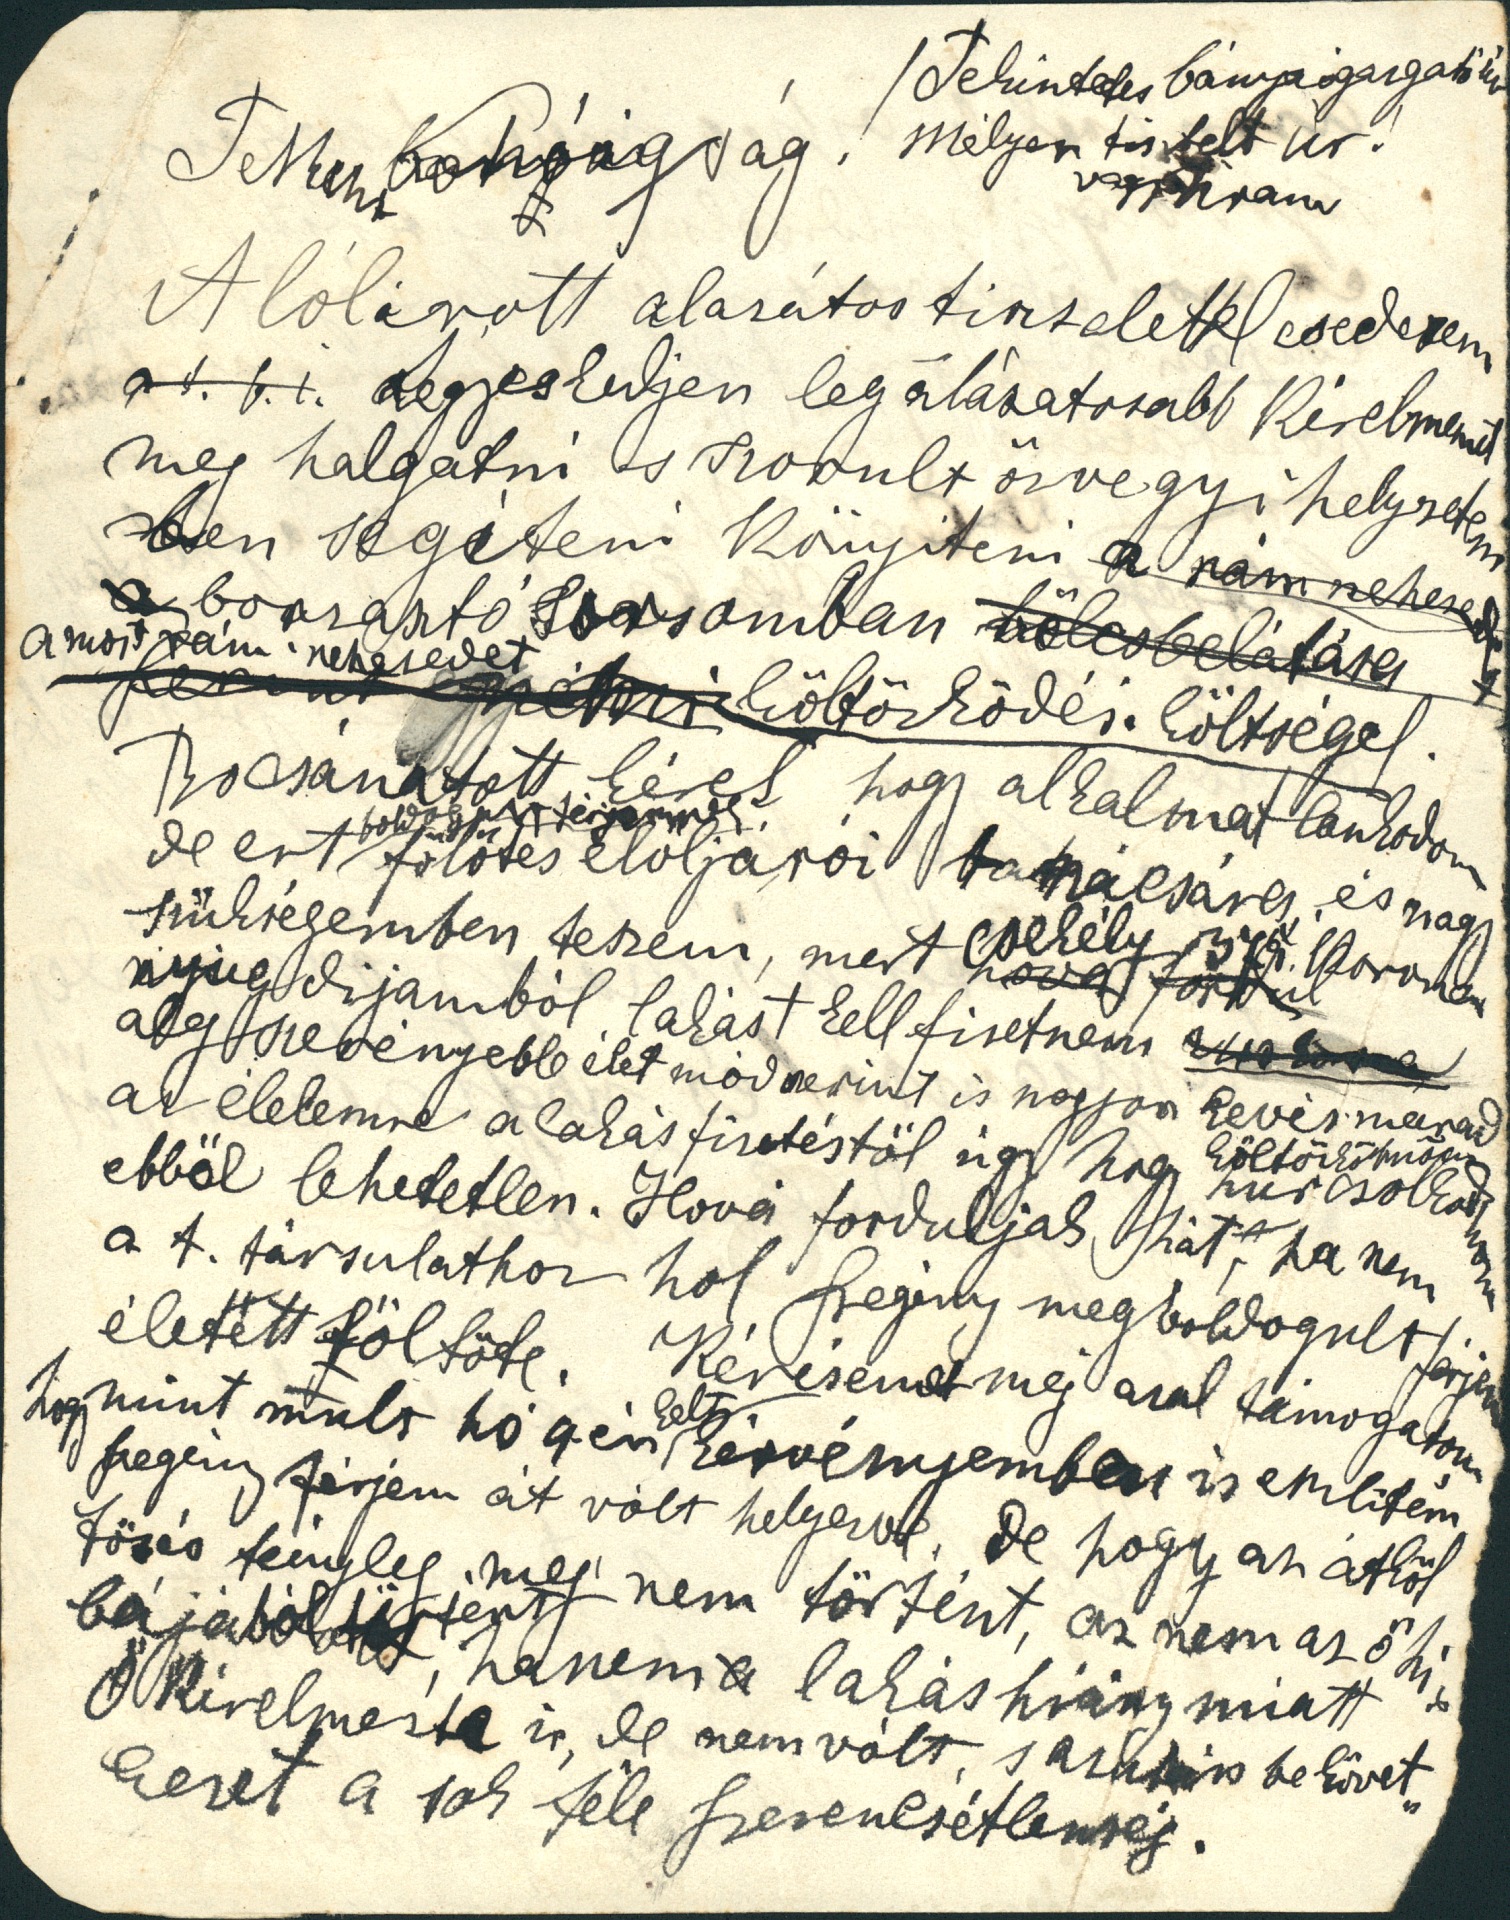 Tekintetes bányaigazgató úr
Mélyen tisztelt úr!
vagy Uram
Alólirott alazátos tisztelettel esedezem
a t. b. i. kegyeskedjen legalázatosabb kérelmemet
meg halgatni s szorult özvegyi helyzetem
ben segiteni könyiteni a rám nehezedet
a borzasztó sorsomban bölcs belátása
a most rám nehezedet
szerint költözködési költségel.
Bocsánatott kérek hogy alkalmatlankodom
de ezt boldogult férjemnek
fölötes elöljárói tanácsára, és nagy
szükségemben teszem, mert csekély 34 k. Koronám
hova fordul
nyugdijamból lakást kell fizetnem
a legszerényebb élet mód szerint is nagyon kevés marad
az élelemre a lakás fizetéstől úgy hogy költözködnöm
hurcsolkodnom
ebböl lehetetlen. Hová forduljak hát, ha nem
a t. társulathoz hol szegény megboldogult férjem
életétt töltöte. Kérésemet még azal támogatom
hogy mint mult hó 9 én kelt kérvényemben is emlitém
szegény férjem át volt helyezve, de hogy az átköl
tözés tényleg meg nem történt, az nem az ő hi
bájából történt, hanem a lakás hiány miatt
Ő kérelmezte is, de nem volt, s azután is bekövet
kezet a sok féle szerencsétlenség.